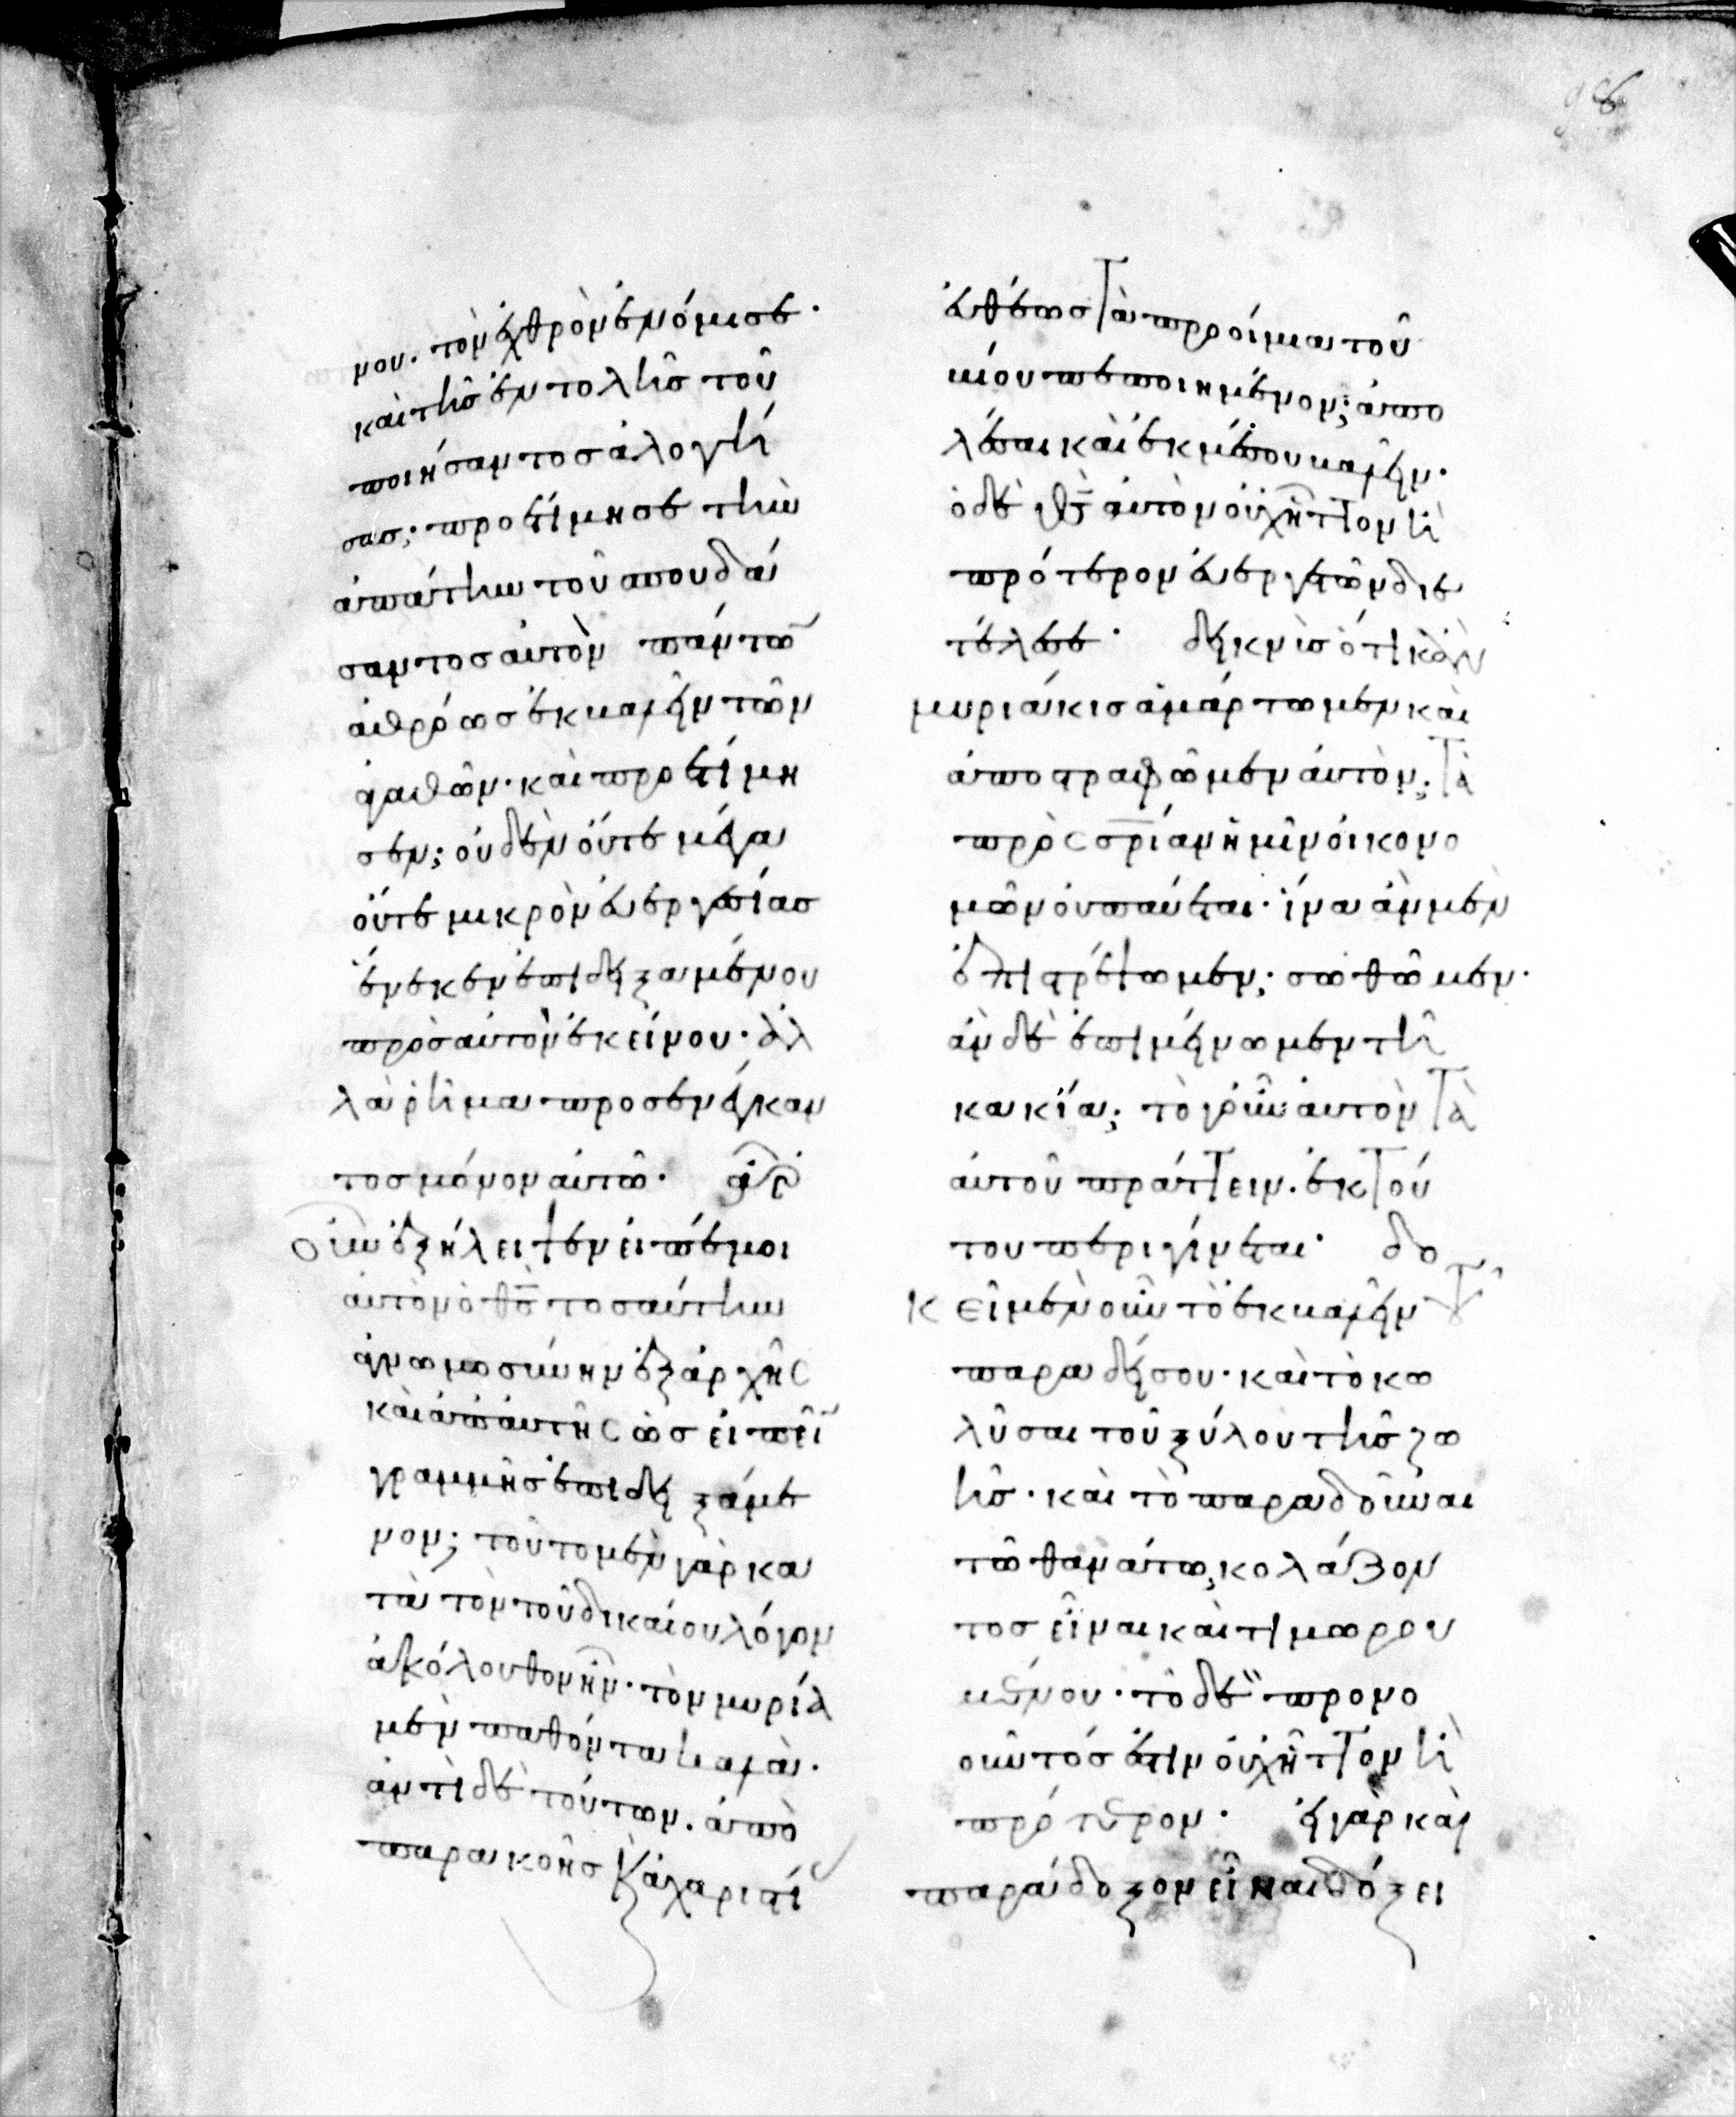 98
μον. τὸν ἐχθρὸν ἐνόμισε·
καὶ τῆς ἐντολῆς τοῦ
ποιήσαντος ἀλογή
σας· προετίμησε τὴν
ἀπάτην τοῦ σπουδά
σαντος αὐτὸν πάντων
ἀθρόως ἐκβαλεῖν τῶν
ἀγαθῶν. καὶ προετίμη
σεν· οὐδὲν οὔτε μέγα
οὔτε μικρὸν εὐεργεσίας
ἕνεκεν ἐπιδειξαμένου
πρὸς αὐτὸν ἐκείνου· ἀλ
λὰ ῥῆμα προσενέγκαν
τος μόνον αὐτῷ. ἆρ
οὖν ἐξήλειψεν εἰπέ μοι
αὐτὸν ὁ θς τοσαύτην
ἀγνωμοσύνην ἐξ ἀρχῆς
καὶ ἀπ αὐτῆς ὡς εἰπεῖν
γραμμῆς ἐπιδειξάμε
νον; τοῦτο μὲν γὰρ κα
τὰ τὸν τοῦ δικαίου λόγον
ἀκόλουθον ἦν. τὸν μυρία
μὲν παθόντα ἀγαθὰ·
ἀντὶ δὲ τούτων. ἀπὸ
παρακοῆς καὶ ἀχαριστί
εὐθέως τὰ προοίμια τοῦ
βίου πεποιημένον; ἀπο
λέσαι καὶ ἐκ μέσου βαλεῖν·
ὁ δὲ θς αὐτὸν οὐχ ἧττον ἢ
πρότερον εὐεργετῶν διε
τέλεσε· δεικνὺς ὅτι κἂν
μυριάκις ἁμάρτωμεν καὶ
ἀποστραφῶμεν αὐτὸν· τὰ
πρὸς σρίαν ἡμῖν οἰκονο
μῶν οὐ παύεται. ἵνα ἂν μὲν
ἐπιστρέψωμεν· σωθῶμεν·
ἂν δὲ ἐπιμένωμεν τῇ
κακίᾳ· τὸ γοῦν αὐτὸν τὰ
αὐτοῦ πράττειν. ἐκ τού
του περιγίνεται· δο
κεῖ μὲν οὖν τὸ ἐκβαλεῖν τοῦ
παραδείσου. καὶ τὸ κω
λῦσαι τοῦ ξύλου τῆς ζω
ῆς. καὶ τὸ παραδοῦναι
τῷ θανάτῳ, κολάζον
τος εἶναι καὶ τιμωρου
μένου. τὸ δὲ προνο
οῦντός ἐστιν οὐχ ἧττον ἢ
πρότερον· εἰ γὰρ καὶ
παράδοξον εἶναι δόξει